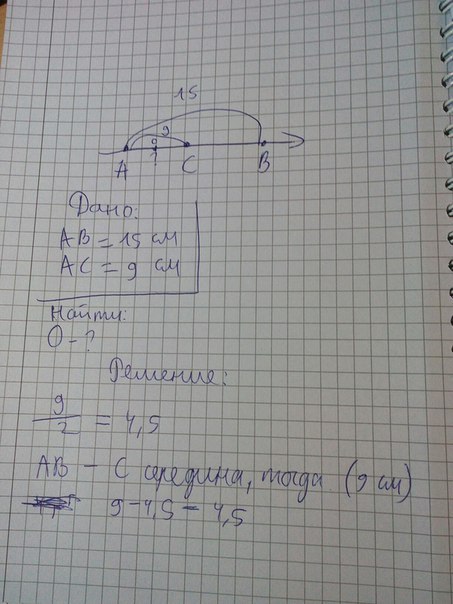 15
9
?
A C B
Дано:
AB = 15 см
AC = 9 см
Найти:
O - ?
Решение:
9/2 = 4,5
AB - C середина, тогда (9 см)
9 - 4,5 = 4,5